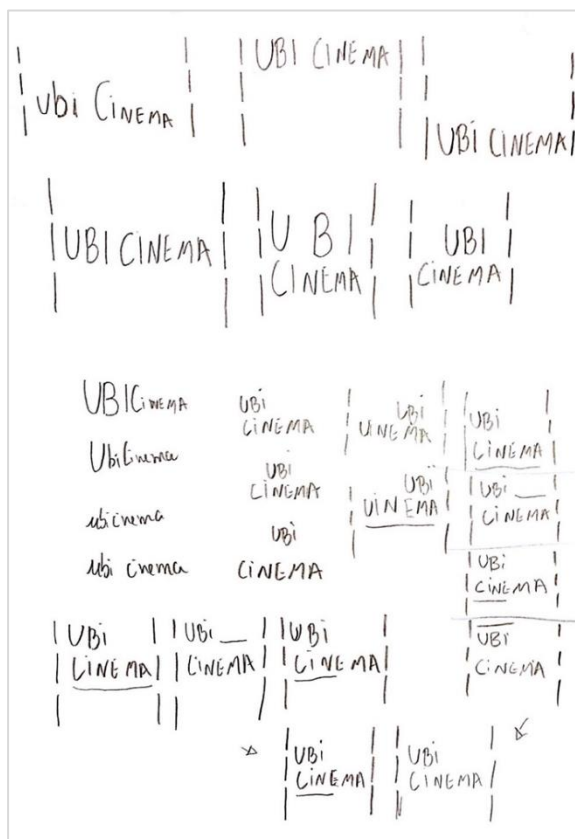 Ubi CiNEMA
UBI CiNEMA
UBi CiNEMA
UBI CiNEMA
U B I
CiNEMA
UBI
CiNEMA
UBICiNEMA
UbiCinema
ubicinema
ubi cinema
UBi
CiNEMA
UBi
CiNEMA
UBi
CiNEMA
UBi
UiNEMA
UBi
UiNEMA
UBi
CiNEMA
UBi
CiNEMA
UBi
CiNEMA
UBi
CiNEMA
UBi
CiNEMA
UBi
CiNEMA
UBi
CiNEMA
UBi
CiNEMA
UBi
CiNEMA